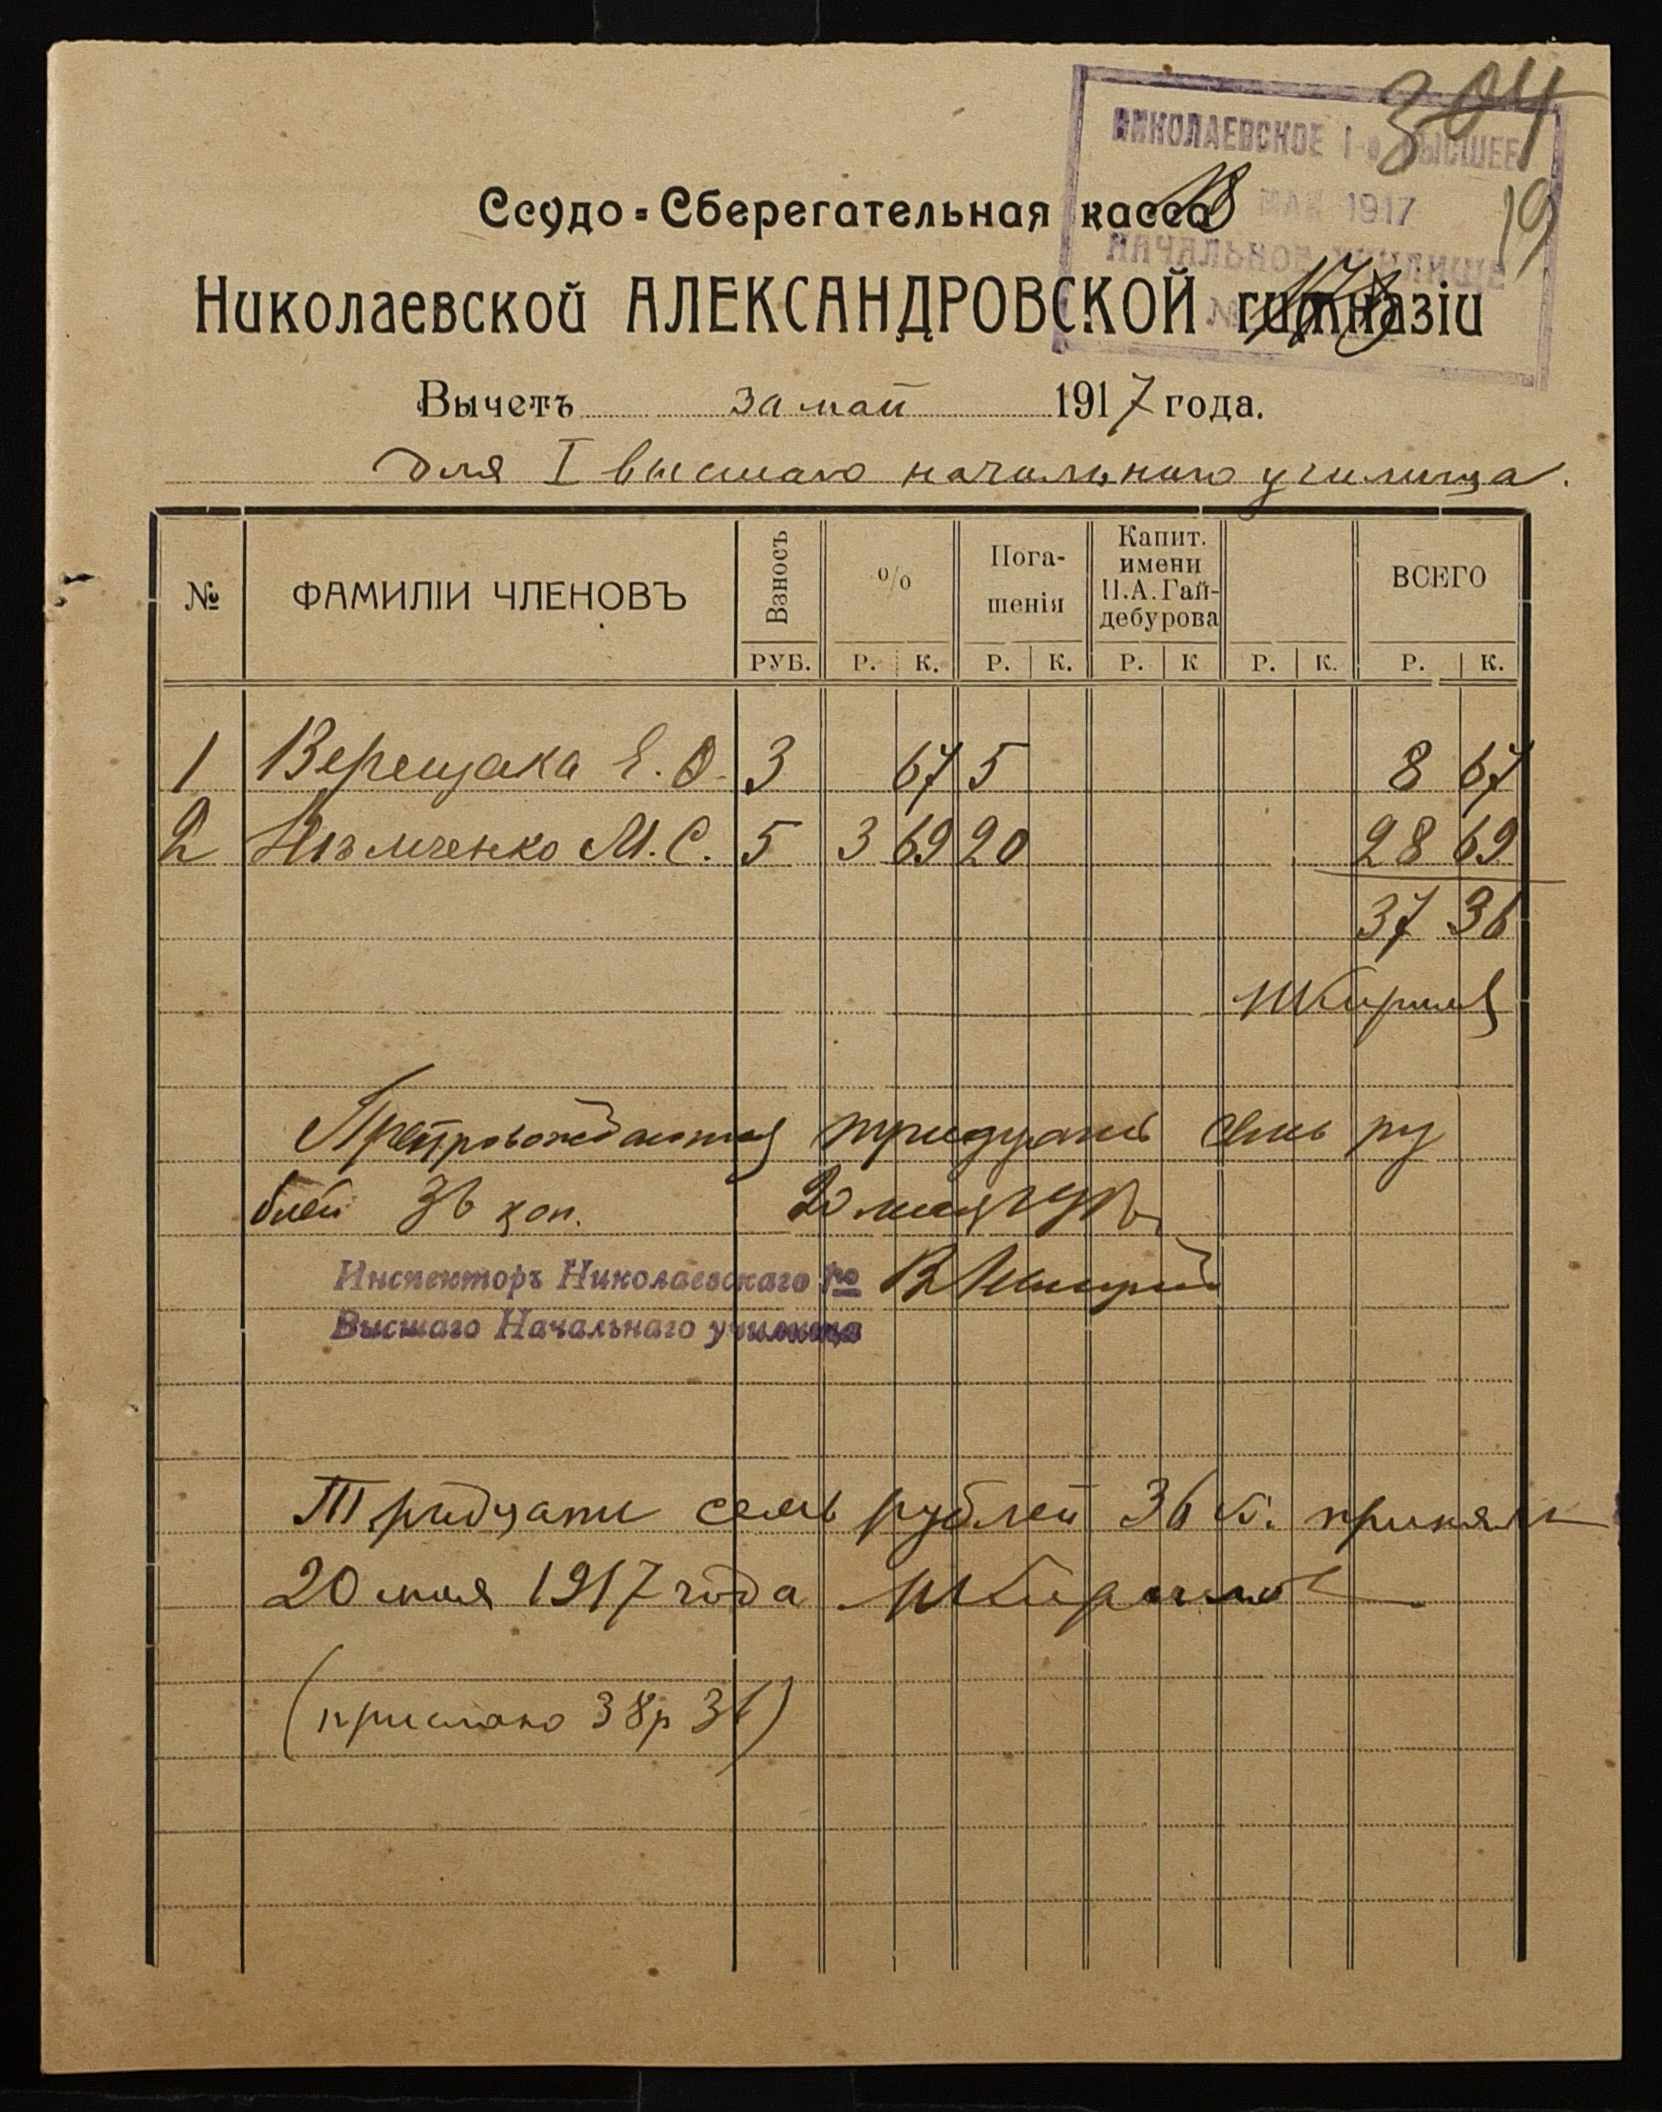 304
НИКОЛАЕВСКОЕ 1-е ВЫСШЕЕ
18 МАЯ 1917
19
НАЧАЛЬНОЕ УЧИЛИЩЕ
№
Ссудо-Сберегательная касса
Николаевской АЛЕКСАНДРОВСКОЙ гимназіи
Вычетъ за май 1917 года.
для I высшаго начальнаго училища.
№ ФАМИЛІИ ЧЛЕНОВЪ Взносъ % Пога-шенія Капит. имени П.А. Гай-дебурова ВСЕГО
РУБ. Р. К. Р. К. Р. К Р. К. Р. К.
1 Верещака Е. О. 3 67 5 8 67
2 Нѣмченко М. С. 5 3 69 20 28 69
37 36
Препровождаются тридцать семь ру
блей 36 коп. 20 мая
Инспекторъ Николаевскаго 1-го
Высшаго Начальнаго училища
Тридцать семь рублей 36 к. принялъ
20 мая 1917 года
(прислано 38 р 36)